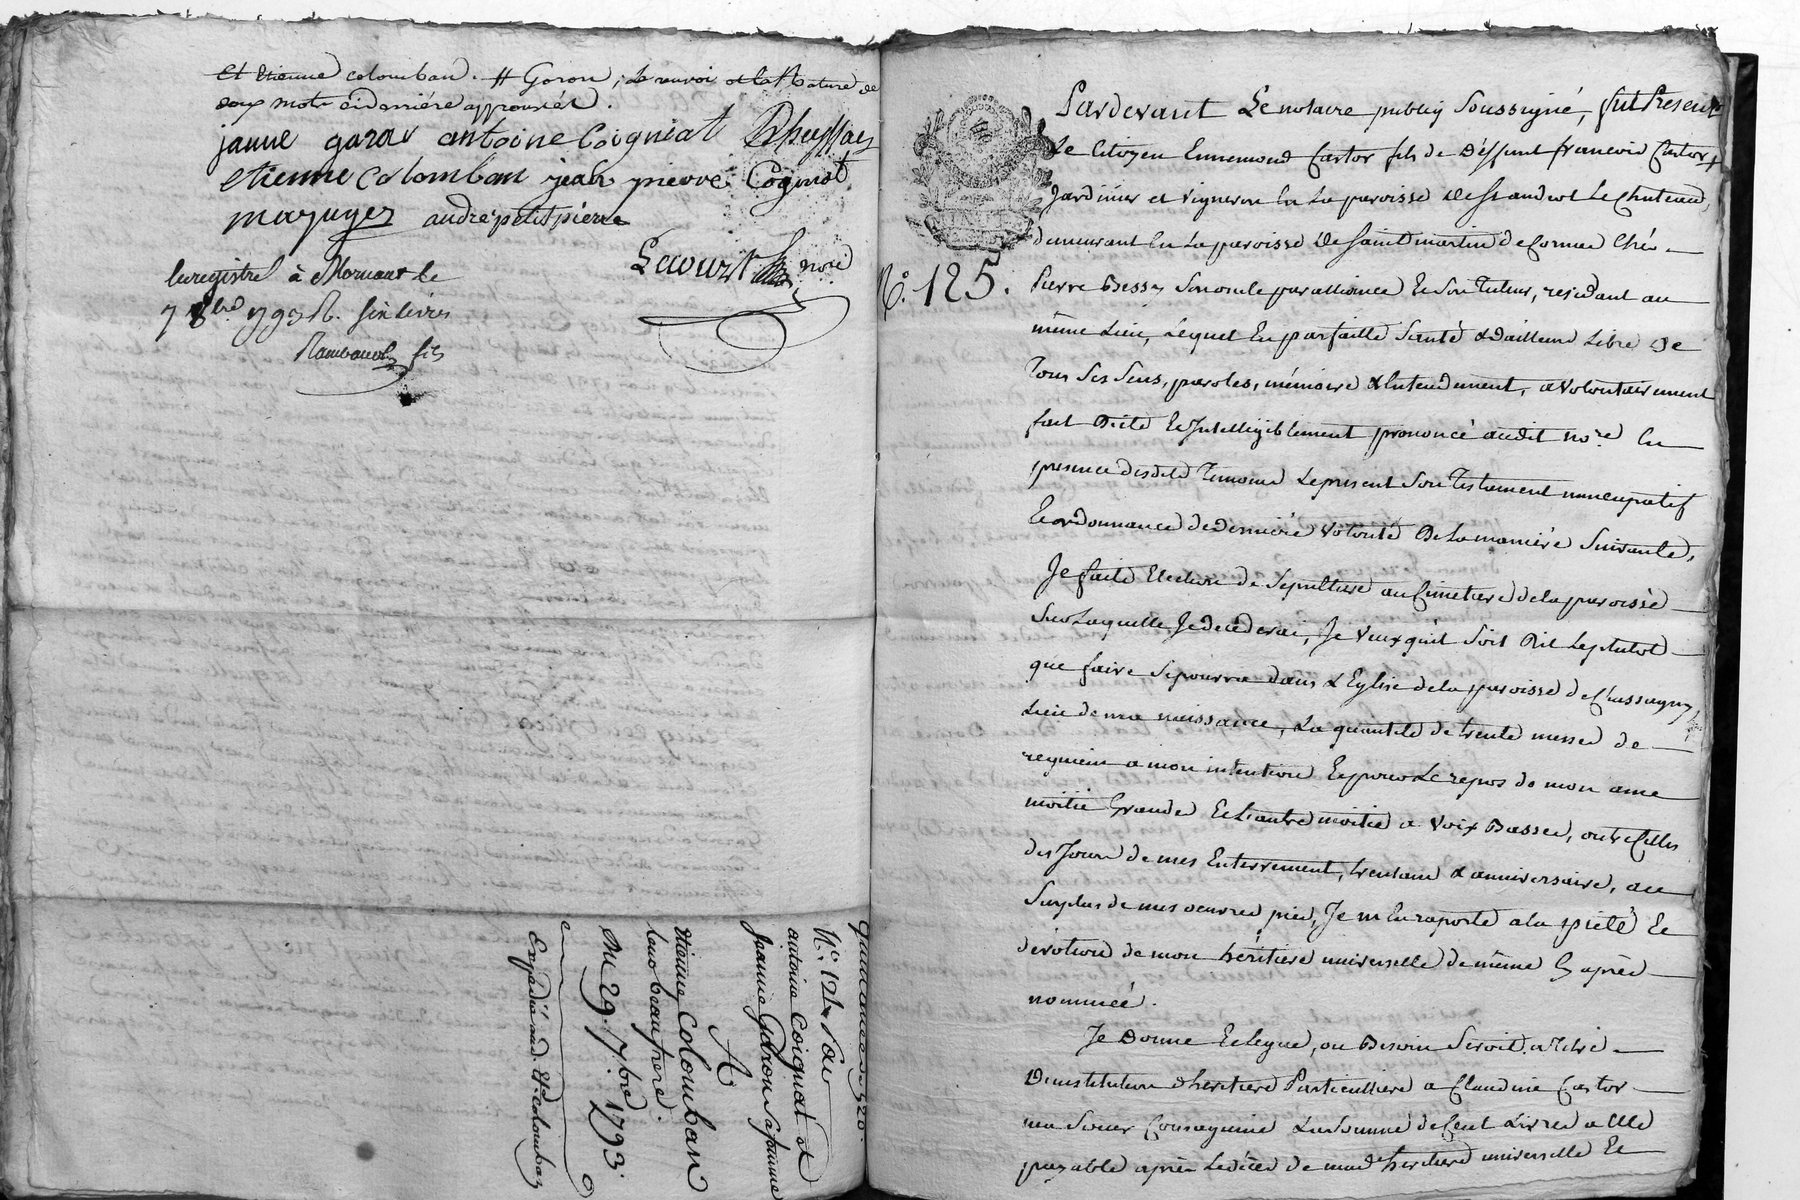 et Etienne colomban. # Goron, le renvoi et la Rature de
deux mots ci derriére approuvés.
janne garon antoine Coigniat
etienne colomban jean pierre Cogniat
mazuyer andré petitpierre
Lecourt nore
Enregistré à Mornant le
7 8bre 1793 R. six livres
Rambaud fils
quittance de 520.
No. 124 Par
antoine Coignat et
Jeanne Garon sa femme
A
Etienne Colomban
leur beau frere.
Du 29. 7.bre 1793.
Expédié aud. Et.ne colomban
No. 125.
Pardevant Le notaire public Soussigné, fut Present
Le Citoyen Ennemond Castor fils de Deffunt francois Castor
Jardinier et Vigneron En La paroisse de St andeol Le Chateau,
demeurant En La paroisse de Saint martin de Cornas Chés
Pierre Bessy Son oncle par alliance Et Son Tuteur, residant au
même Lieu, Lequel En parfaitte Santé & Dailleurs Libre de
Tous Ses Sens, paroles, mémoire & Entendement, a Volontairement
fait Dicté Et Intelligiblement prononcé audit nore. En
presence desdits Temoins Le present Son Testament nuncupatif
Et ordonnance de Derniére Volonté De La maniere Suivante,
Je faits Election de Sepulture au Cimetiere de la paroisse
Sur Laquelle Je decederai, Je Veux qu'il Soit Dit Le plutot
que faire Se pourra dans L'Eglise de la paroisse de Chassagny,
Lieu de ma naissance, La quantité de trente messes de
requiem a mon intention Et pour Le repos de mon ame
moitié Grandes Et L'autre moitié a Voix Basses, outre Celles
des Jours de mes Enterrement, trentain & anniversaire, au
Surplus de mes oeuvres pies, Je m'En raporte a la piété Et
devotion de mon héritiere universelle de même Cy après
nommée.
Je Donne Et Legue, ou Besoin Seroit a Titre
D'institution d'heritiere Particulliere a Claudine Castor
ma Soeur Consaguine La Somme de Cent Livres a Elle
payable après Le décès de mad.e heritiere universelle Et